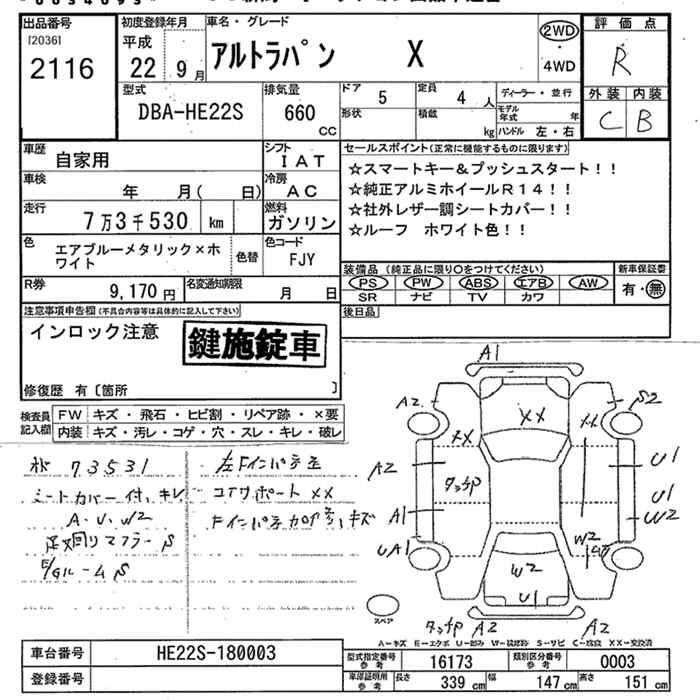 出品番号
[2036]
2116
初度登録年月
平成
22年 9月
車名・グレード
アルトラパン X
2WD
・
4WD
評価点
R
外装 内装
C B
型式
DBA-HE22S
排気量
660 CC
ドア
5
定員
4 人
形状
積載
kg
ディーラー・並行
モデル年式 年
ハンドル 左・右
車歴
自家用
シフト
IAT
車検
年 月( 日)
冷房
AC
走行
7万3千530 km
燃料
ガソリン
色
エアブルーメタリック×ホワイト
色替
色コード
FJY
R券
9,170 円
名変通知期限
月 日
セールスポイント(正常に機能するものに限ります)
☆スマートキー&プッシュスタート!!
☆純正アルミホイールR14!!
☆社外レザー調シートカバー!!
☆ルーフ ホワイト色!!
装備品(純正品に限り○をつけてください)
PS PW ABS エアB AW
SR ナビ TV カワ
新車保証書
有・無
後日品
注意事項申告欄(不具合内容等は具体的に記入して下さい)
インロック注意
鍵施錠車
修復歴 有〔箇所 〕
検査員記入欄
FW キズ・飛石・ヒビ割・リペア跡・×要
内装 キズ・汚レ・コゲ・穴・スレ・キレ・破レ
73531
シートカバー付、キレ
A・U・W2
足廻りマフラーS
左Fインパネ歪
コアサポートXX
A1
A2
S2
XX
XX
XX
A2
タッチ印
U1
U1
A1
W2
UA1
W2
W2
U1
スペア
A2
A2
A—キズ E—エクボ U—凹み W—波板跡 S—サビ C—腐食 XX—交換済
車台番号
HE22S-180003
登録番号
型式指定番号 参考
16173
類別区分番号 参考
0003
車庫証明用 参考
長さ 339 cm
幅 147 cm
高さ 151 cm